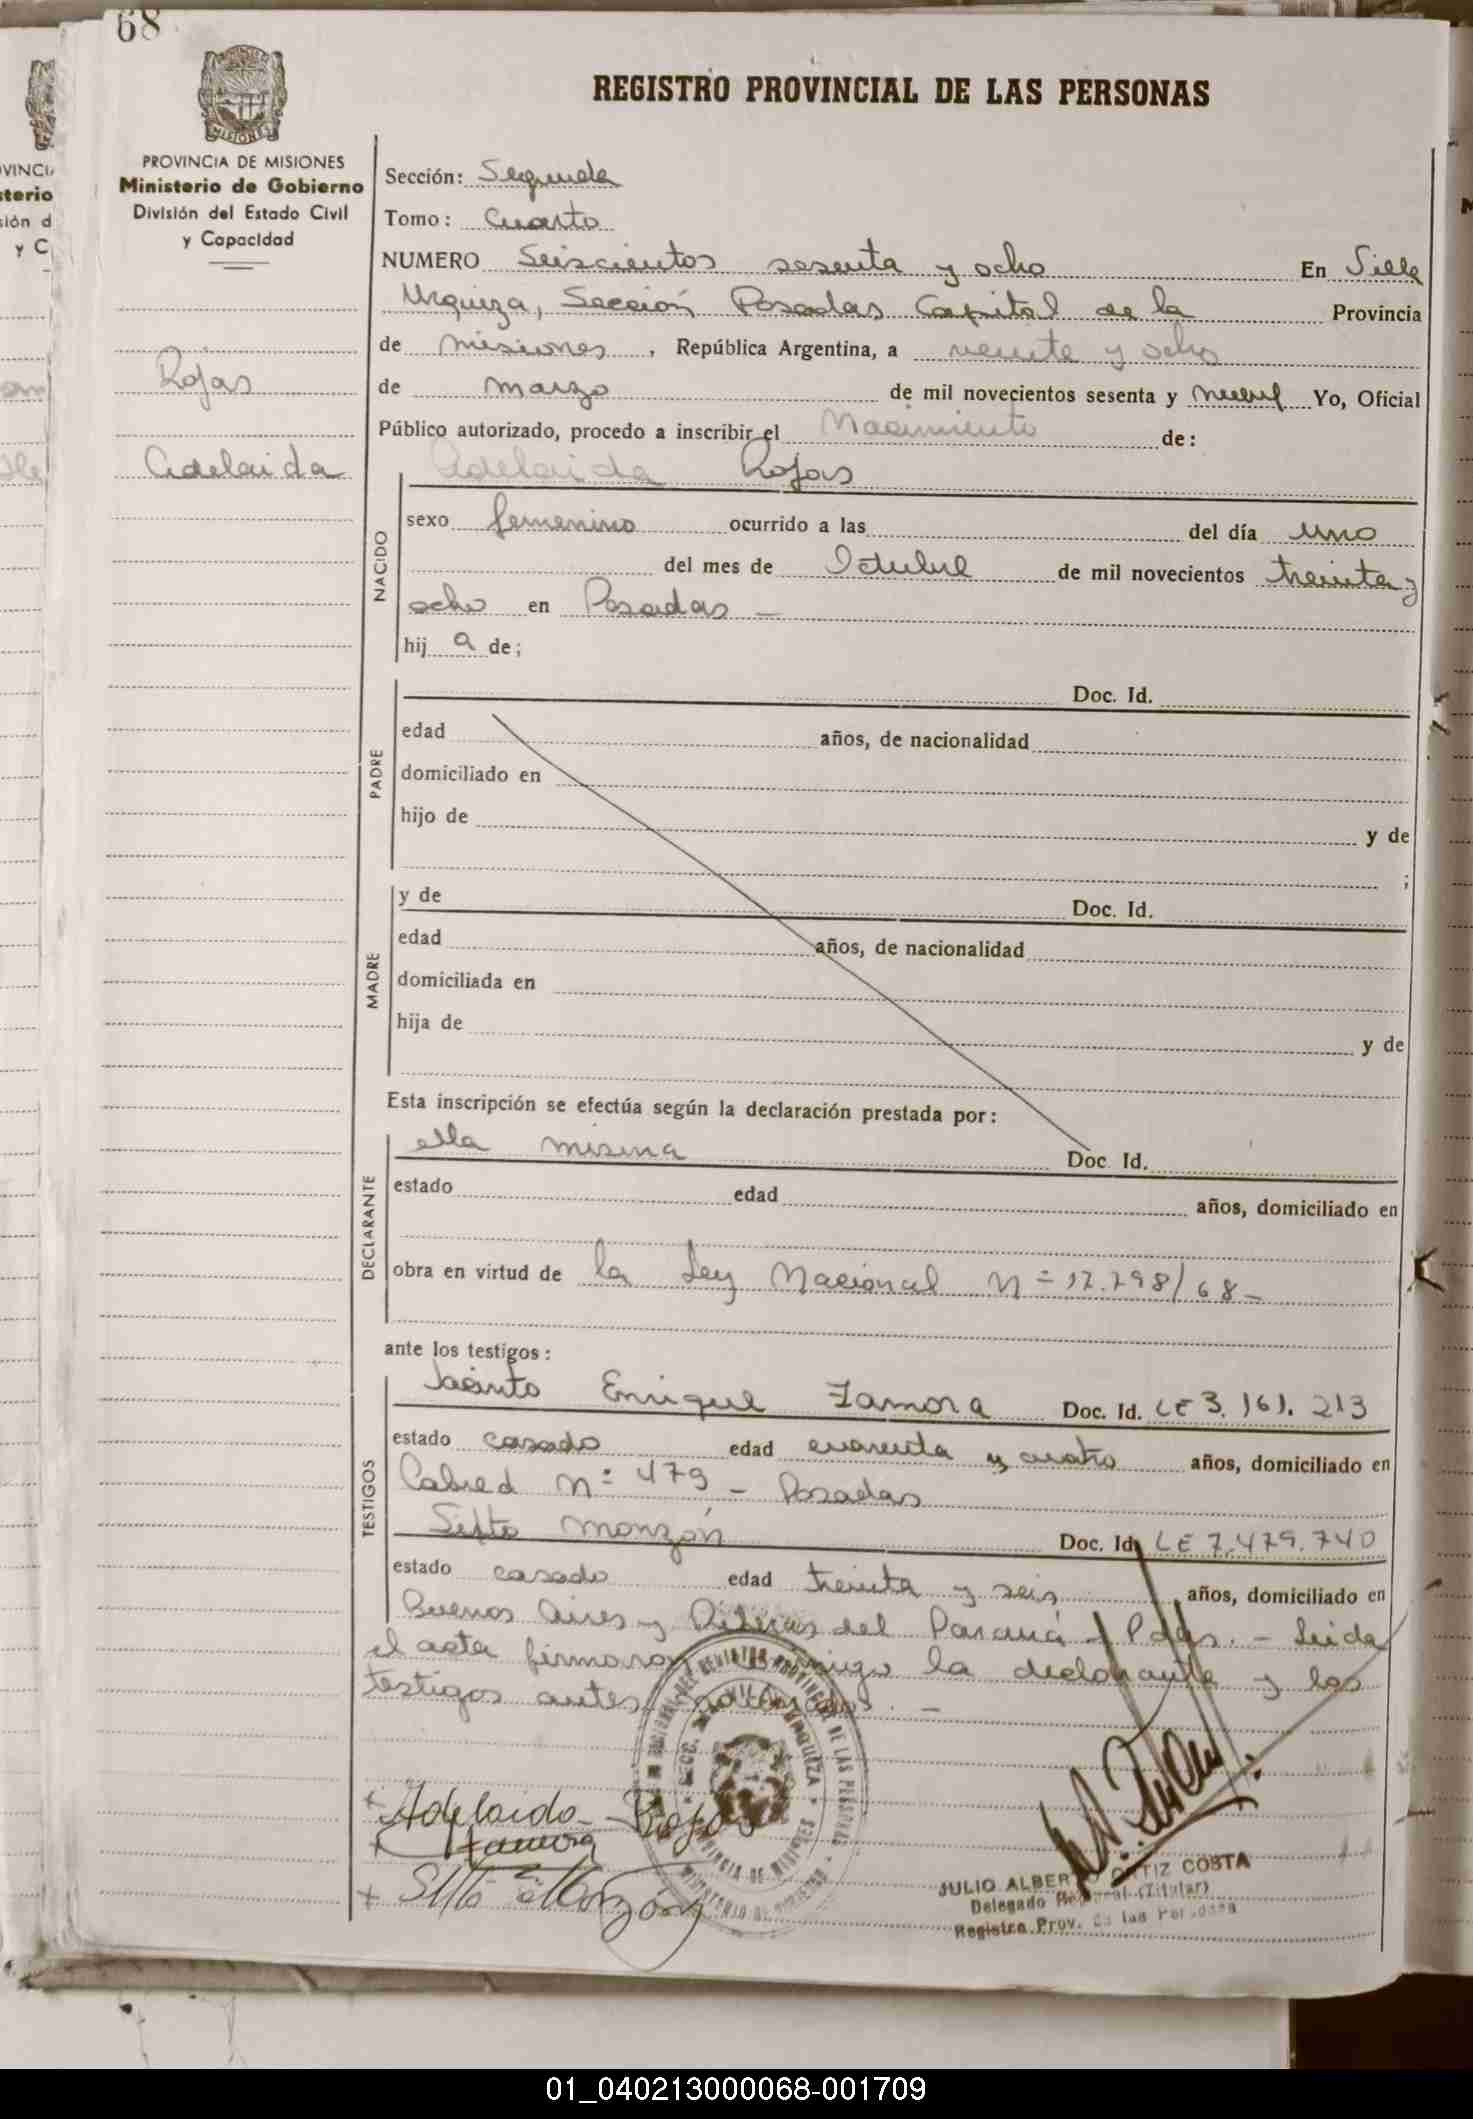 68
PROVINCIA DE MISIONES
Ministerio de Gobierno
División del Estado Civil
y Capacidad
Rojas
Adelaida
REGISTRO PROVINCIAL DE LAS PERSONAS
Sección: Segunda
Tomo: Cuarto
NUMERO Seiscientos sesenta y ocho En Villa
Urquiza, Sección Posadas Capital de la Provincia
de misiones, República Argentina, a veinte y ocho
de marzo de mil novecientos sesenta y nueve Yo, Oficial
Público autorizado, procedo a inscribir el Nacimiento de:
Adelaida Rojas
NACIDO
sexo femenino ocurrido a las del día uno
del mes de Octubre de mil novecientos treinta y
ocho en Posadas —
hij a de;
PADRE
Doc. Id.
edad años, de nacionalidad
domiciliado en
hijo de y de
;
MADRE
y de Doc. Id.
edad años, de nacionalidad
domiciliada en
hija de y de
Esta inscripción se efectúa según la declaración prestada por:
DECLARANTE
ella misma Doc. Id.
estado edad años, domiciliado en
obra en virtud de la Ley Nacional n= 17.798/68-
ante los testigos:
TESTIGOS
Jacinto Enrique Zamora Doc. Id. LE 3.161.213
estado casado edad cuarenta y cuatro años, domiciliado en
Cabred n= 479 - Posadas
Sixto monzón Doc. Id. LE 7.479.740
estado casado edad treinta y seis años, domiciliado en
Buenos Aires y Riberas del Paraná - Pdas. - Leida
el acta firmaron conmigo la declarante y los
testigos antes -
+ Adelaida Rojas
+ Zamora
+ Sixto E Monzón
JULIO ALBERTO ORTIZ COSTA
Delegado (Titular)
Registro Prov. de las Personas
01_040213000068-001709